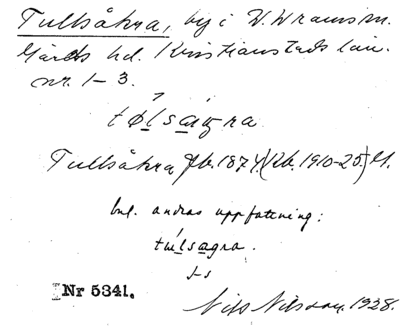 Tullsåkra, by i V. Vrams sn.
Gärds hd. Kristianstads län.
nr. 1–3.
tø̱lsa̱gra
Tullsåkra Jb. 1874. (Kb. 1910-25.)
enl. andras uppfattning:
tu̱lsa̱gra.
s-s
Nr 5341.
Nils Nilsson, 1928.